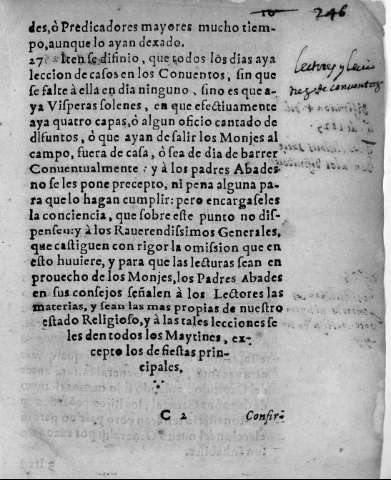 246
des, ò Predicadores mayores mucho tiem-
po, aunque lo ayan dexado.
27 Iten se difinio, que todos los dias aya
leccion de casos en los Conuentos, sin que
se falte à ella en dia ninguno, sino es que a-
ya Visperas solenes, en que efectiuamente
aya quatro capas, ò algun oficio cantado de
difuntos, ò que ayan de salir los Monjes al
campo, fuera de casa, ò sea de dia de barrer
Conuentualmente: y à los padres Abades
no se les pone precepto, ni pena alguna pa-
ra que lo hagan cumplir: pero encargaseles
la conciencia, que sobre este punto no dis-
pensen: y à los Rauerendissimos Generales,
que castiguen con rigor la omission que en
esto huuiere, y para que las lecturas sean en
prouecho de los Monjes, los Padres Abades
en sus consejos señalen à los Lectores las
materias, y sean las mas propias de nuestro
estado Religioso, y à las tales lecciones se
les den todos los Maytines, ex-
cepto los de fiestas prin-
cipales.
C 2 Confir-
Lectores y Lecio
nes de conuentos